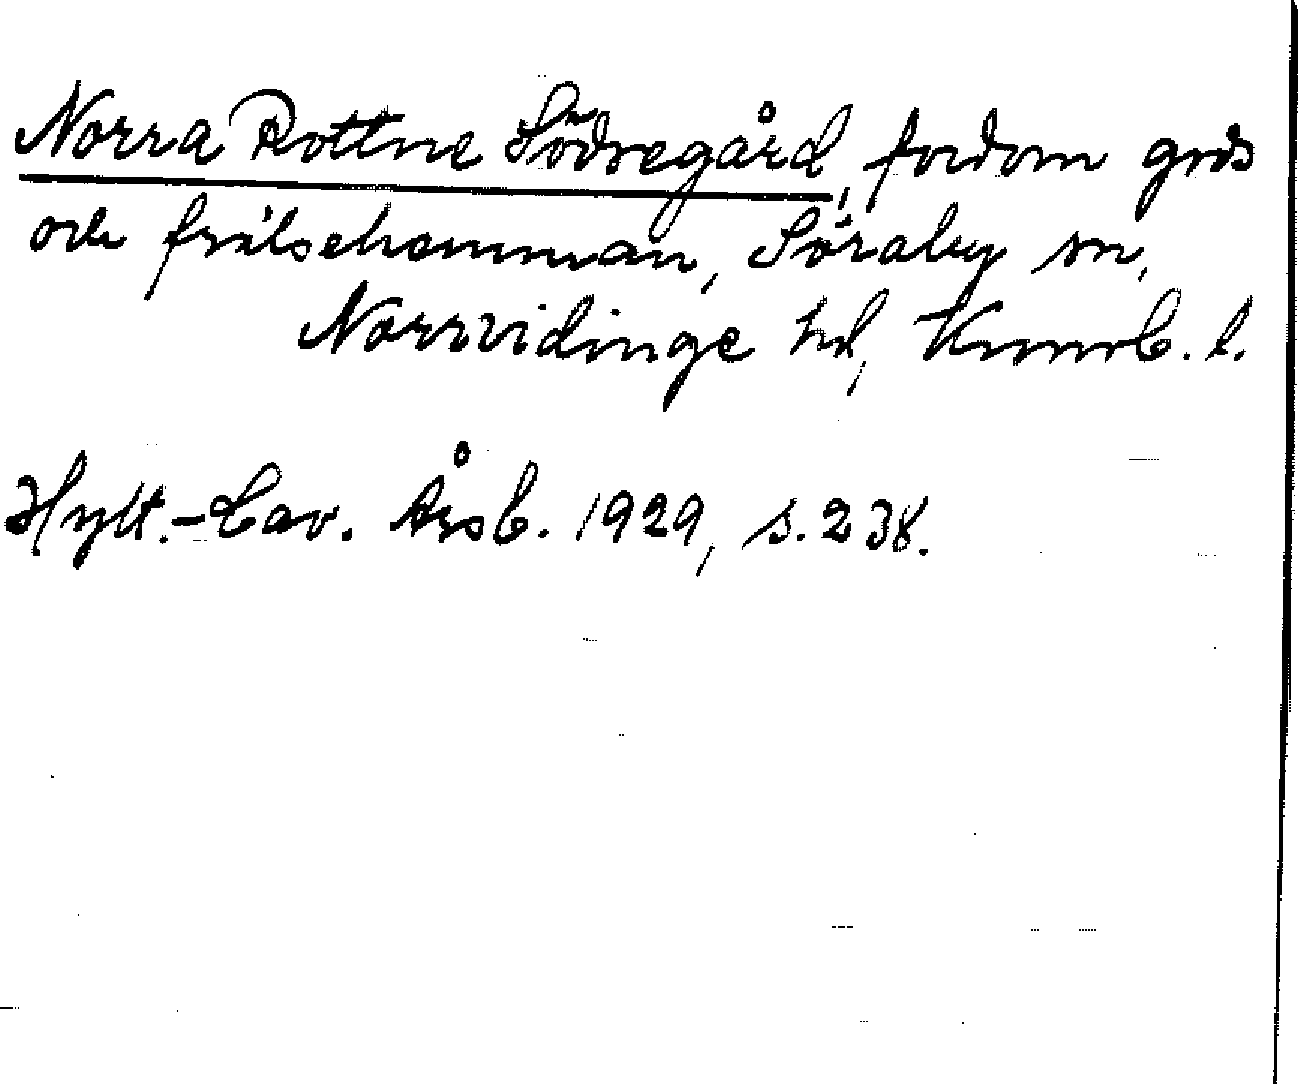 Norra Rottne Södregård, fordom gods
och frälsehemman, Söraby sn,
Norrvidinge hd, Kronob. l.
Hylt.-Cav. Årsb. 1929, s. 238.